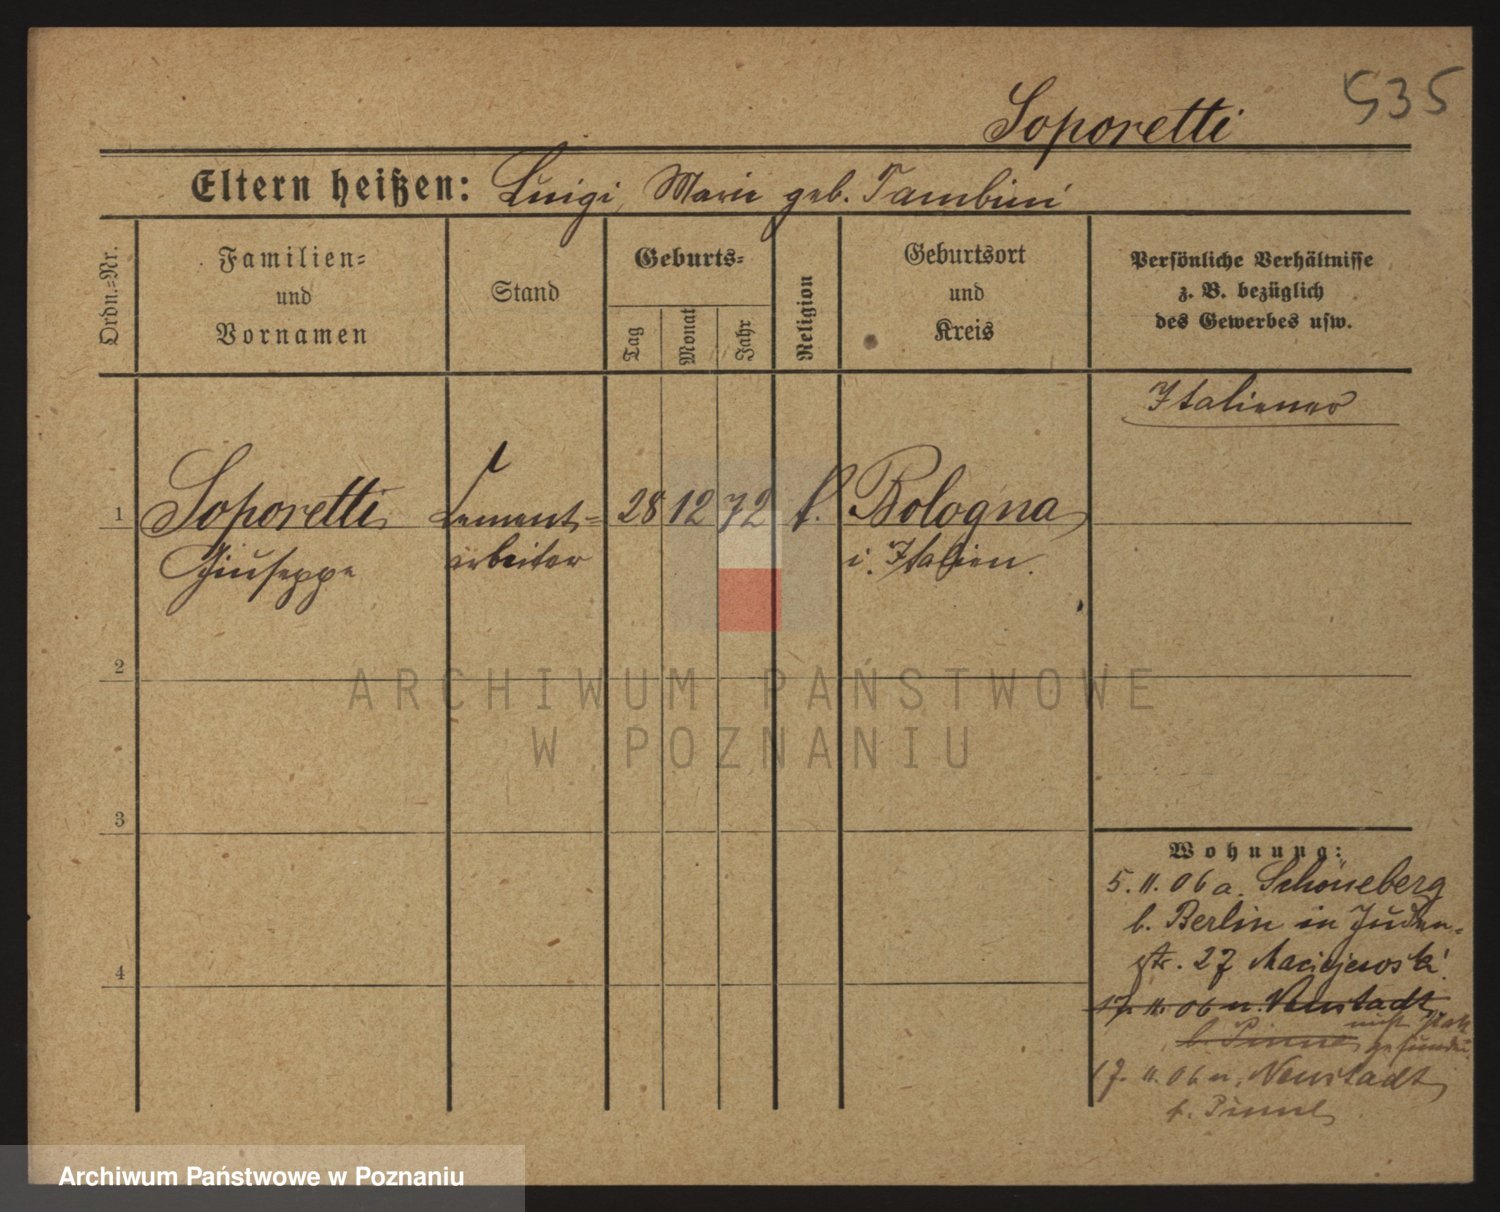 535
Soporetti
Eltern heißen: Luigi, Marie geb. Tambini
Ordn.-Nr.
Familien- und Vornamen
Stand
Geburts-
Tag
Monat
Jahr
Religion
Geburtsort und Kreis
Persönliche Verhältnisse
z. B. bezüglich
des Gewerbes usw.
Italiener
1 Soporetti Cement- 28 12 72 k. Bologna
Giuseppe arbeiter i. Italien.
2
3
4
Wohnung:
5. 11. 06 a. Schöneberg
b. Berlin in Juden-
str. 27 Maciejewski
17. 11. 06 n. Neustadt
b. Pinne nicht statt
gefunden
17. 11. 06 n. Neustadt
b. Pinne
ARCHIWUM PAŃSTWOWE
W POZNANIU
Archiwum Państwowe w Poznaniu